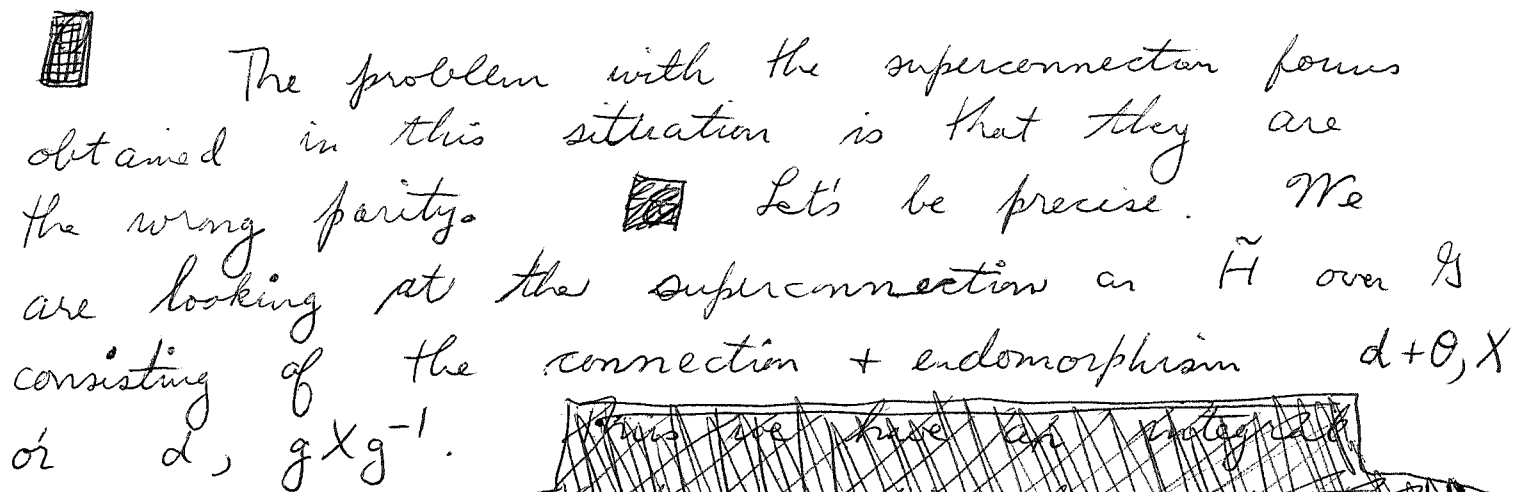 The problem with the superconnection forms
obtained in this situation is that they are
the wrong parity. Let's be precise. We
are looking at the superconnection on H̃ over 𝒢
consisting of the connection + endomorphism d+θ, X
or d, gXg⁻¹. Thus we have an integral